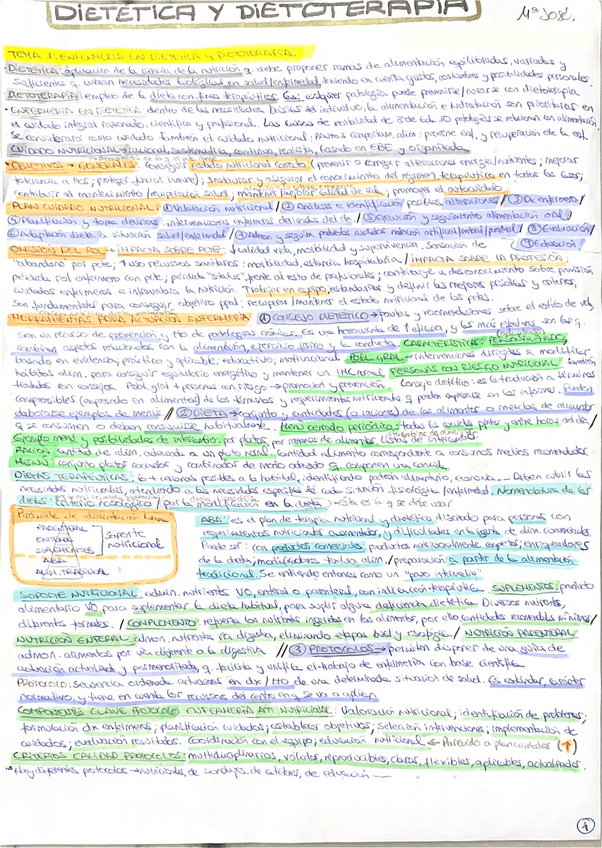 DIETETICA Y DIETOTERAPIA
Mª José.
TEMA 1. ENFERMERIA EN DIETETICA Y DIETOTERAPIA.
- DIETETICA: aplicación de la ciencia de la nutrición q. debe proponer formas de alimentación equilibradas, variadas y
suficientes q. cubran necesidades biológicas en salud/enfermedad, teniendo en cuenta gustos, costumbres y posibilidades personales.
DIETOTERAPIA: empleo de la dieta con fines terapéuticos. Casi cualquier patología puede prevenirse/curarse con dietoterapia.
- ENFERMERIA EN DIETETICA dentro de las necesidades básicas del individuo, la alimentación e hidratación son prioritarias en
el cuidado integral, científico y profesional. Las causas de mortalidad de 8 de cada 10 patologías se relacionan con alimentación
Se consideran como cuidado también el cuidado nutricional: y recuperación de la
CUIDADO NUTRICIONAL → racional, sistemático, continuo, realista, basado en EBE y organizado.
OBJETIVOS → GENERALES: Conseguir estado nutricional correcto (prevenir o corregir alteraciones energía/nutrientes; mejorar
proteger; instaurar y asegurar el conocimiento del régimen terapéutico en todos los casos;
contribuir al mantenimiento/recuperación salud; mantener/mejorar calidad de vida; promover el autocuidado
PLAN CUIDADO NUTRICIONAL: ① Valoración nutricional / ② Análisis e identificación / ③ Dx enfermero /
④ Planificación y toma decisiones. intervenciones enfermeras derivadas del dx / ⑤ Ejecución y seguimiento alimentación oral /
⑥ Adaptación dieta situación salud/enfermedad / ⑦ ⑧ Evaluación /
⑨ Educación
OMISION DEL PCN → IMPACTO SOBRE PCTE: ↓ calidad vida, morbilidad y supervivencia, sensación de
"abandono" por pcte; ↑ uso recursos sanitarios: morbilidad, estancia hospitalaria / IMPACTO SOBRE LA PROFESION:
pérdida rol enfermero con pcte, pérdida "status" frente al resto de profesionales; contribuye a desconocimiento sobre provisión
cuidados enfermeros e infravalora la nutrición. Trabajar en equipo, estandarizar y definir las mejores prácticas y criterios,
son fundamentales para conseguir objetivo ppal: recuperar/mantener el estado nutricional de los pctes.
HERRAMIENTAS PARA ACTUACION ENFERMERA ① CONSEJO DIETETICO → pautas y recomendaciones sobre el estilo de vida,
son un recurso de prevención y tto de patologías crónicas. Es una herramienta eficaz, y los más efectivos son los q.
combinan aspectos relacionados con la alimentación, ejercicio físico y la conducta. CARACTERISTICAS: PERSONALIZADO,
basado en evidencias, práctico y aplicable, educativo, motivacional. POBL. GRAL → intervenciones dirigidas a modificar
hábitos alim. para conseguir equilibrio energético y mantener un IMC normal. PERSONAS CON RIESGO NUTRICIONAL
Pobl. gral + personas con riesgo → promoción y prevención. Consejo dietético: es la traducción a términos
comprensibles (expresado en alimentos) de los términos y requerimientos nutricionales q. pueden expresarse en los informes. Pueden
elaborarse ejemplos de menús // ② DIETA → conjunto y cantidades (o raciones) de los alimentos o mezclas de alimentos
q. se consumen o deben consumirse habitualmente. Menú cerrado periódico:
Ejemplo menú y posibilidades de intercambio: por platos, por raciones de alimentos. Listas de intercambio.
RACION: cantidad de alim. adecuada a un plato normal.
MENU: conjunto platos cocinados y combinados de modo adecuado q. componen una comida.
DIETAS TERAPEUTICAS: Deben cubrir las
necesidades nutricionales, atendiendo a las necesidades específicas de cada situación fisiológica/enfermedad. Nomenclatura de las
dietas: criterio nosológico / por la modificación en la dieta → esta es la q se debe usar
Pirámide de alimentación humana
PARENTERAL
ENTERAL
SUPLEMENTOS
soporte nutricional
ABA
ALIM. TRADICIONAL
ABA: es el plan de terapia nutricional y dietético diseñado para personas con
requerimientos nutricionales aumentados, y dificultades en la ingesta de alim. convencionales.
Puede ser: con productos comerciales: productos nutricionalmente completos; enriquecedores
de la dieta, modificadores textura alim. / preparación a partir de la alimentación
tradicional. Se entiende entonces como un "paso intermedio".
SOPORTE NUTRICIONAL: admin. nutrientes VO, enteral o parenteral, con indicación terapéutica. SUPLEMENTOS: producto
alimentario VO para suplementar la dieta habitual, para suplir alguna deficiencia dietética. Diversos nutrientes,
diferentes formatos. / COMPLEMENTO: refuerza los nutrientes ingeridos en los alimentos, por ello cantidades recomendadas mínimas /
NUTRICION ENTERAL: admon. nutrientes vía digestiva, eliminando etapas bucal y esofágica / NUTRICION PARENTERAL
admon. alimentos por vía diferente a la digestiva // ③ PROTOCOLOS → permiten disponer de una guía de
actuación actualizada y q. facilita y unifica el trabajo de enfermería con base científica.
PROTOCOLO: secuencia ordenada actuaciones en dx/tto de una determinada situación de salud. Es estándar, carácter
normativo, y tiene en cuenta los recursos del centro en q. se va a aplicar.
COMPONENTES CLAVE PROTOCOLO ENFERMERIA ATT. NUTRICIONAL: Valoración nutricional; identificación de problemas;
formulación dx enfermeros; planificación cuidados; establecer objetivos; selección intervenciones; implementación de
cuidados; evaluación resultados. Coordinación con el equipo; educación nutricional ← Parecido a plan cuidados (↑)
CRITERIOS CALIDAD PROTOCOLOS: multidisciplinarios, válidos, reproducibles, claros, flexibles, aplicables, actualizados.
* Hay diferentes protocolos → nutricionales, de sondajes, de catéteres, de educación
1